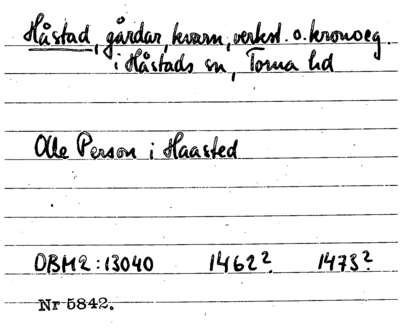 Håstad, gårdar, kvarn, verkst. o. kronoeg.
i Håstads sn, Torna hd
Olle Person i Haasted
DBM2:13040 1462? 1473?
Nr 5842.